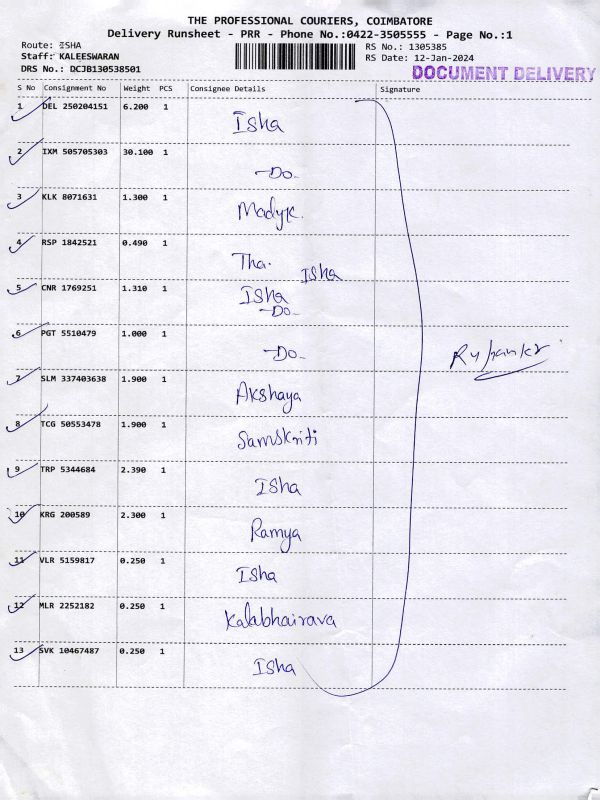 THE PROFESSIONAL COURIERS, COIMBATORE
Delivery Runsheet - PRR - Phone No.:0422-3505555 - Page No.:1
Route: ISHA
Staff: KALEESWARAN
DRS No.: DCJB130538501
RS No.: 1305385
RS Date: 12-Jan-2024
DOCUMENT DELIVERY
S No Consignment No Weight PCS Consignee Details Signature
1 DEL 250204151 6.200 1 Isha
2 IXM 505705303 30.100 1 -Do-
3 KLK 8071631 1.300 1
4 RSP 1842521 0.490 1 Tha. Isha
5 CNR 1769251 1.310 1 Isha
-Do-
6 PGT 5510479 1.000 1 -Do-
7 SLM 337403638 1.900 1 Akshaya
8 TCG 50553478 1.900 1 Samskriti
9 TRP 5344684 2.390 1 Isha
10 KRG 200589 2.300 1 Ramya
11 VLR 5159817 0.250 1 Isha
12 MLR 2252182 0.250 1 Kalabhairava
13 SVK 10467487 0.250 1 Isha